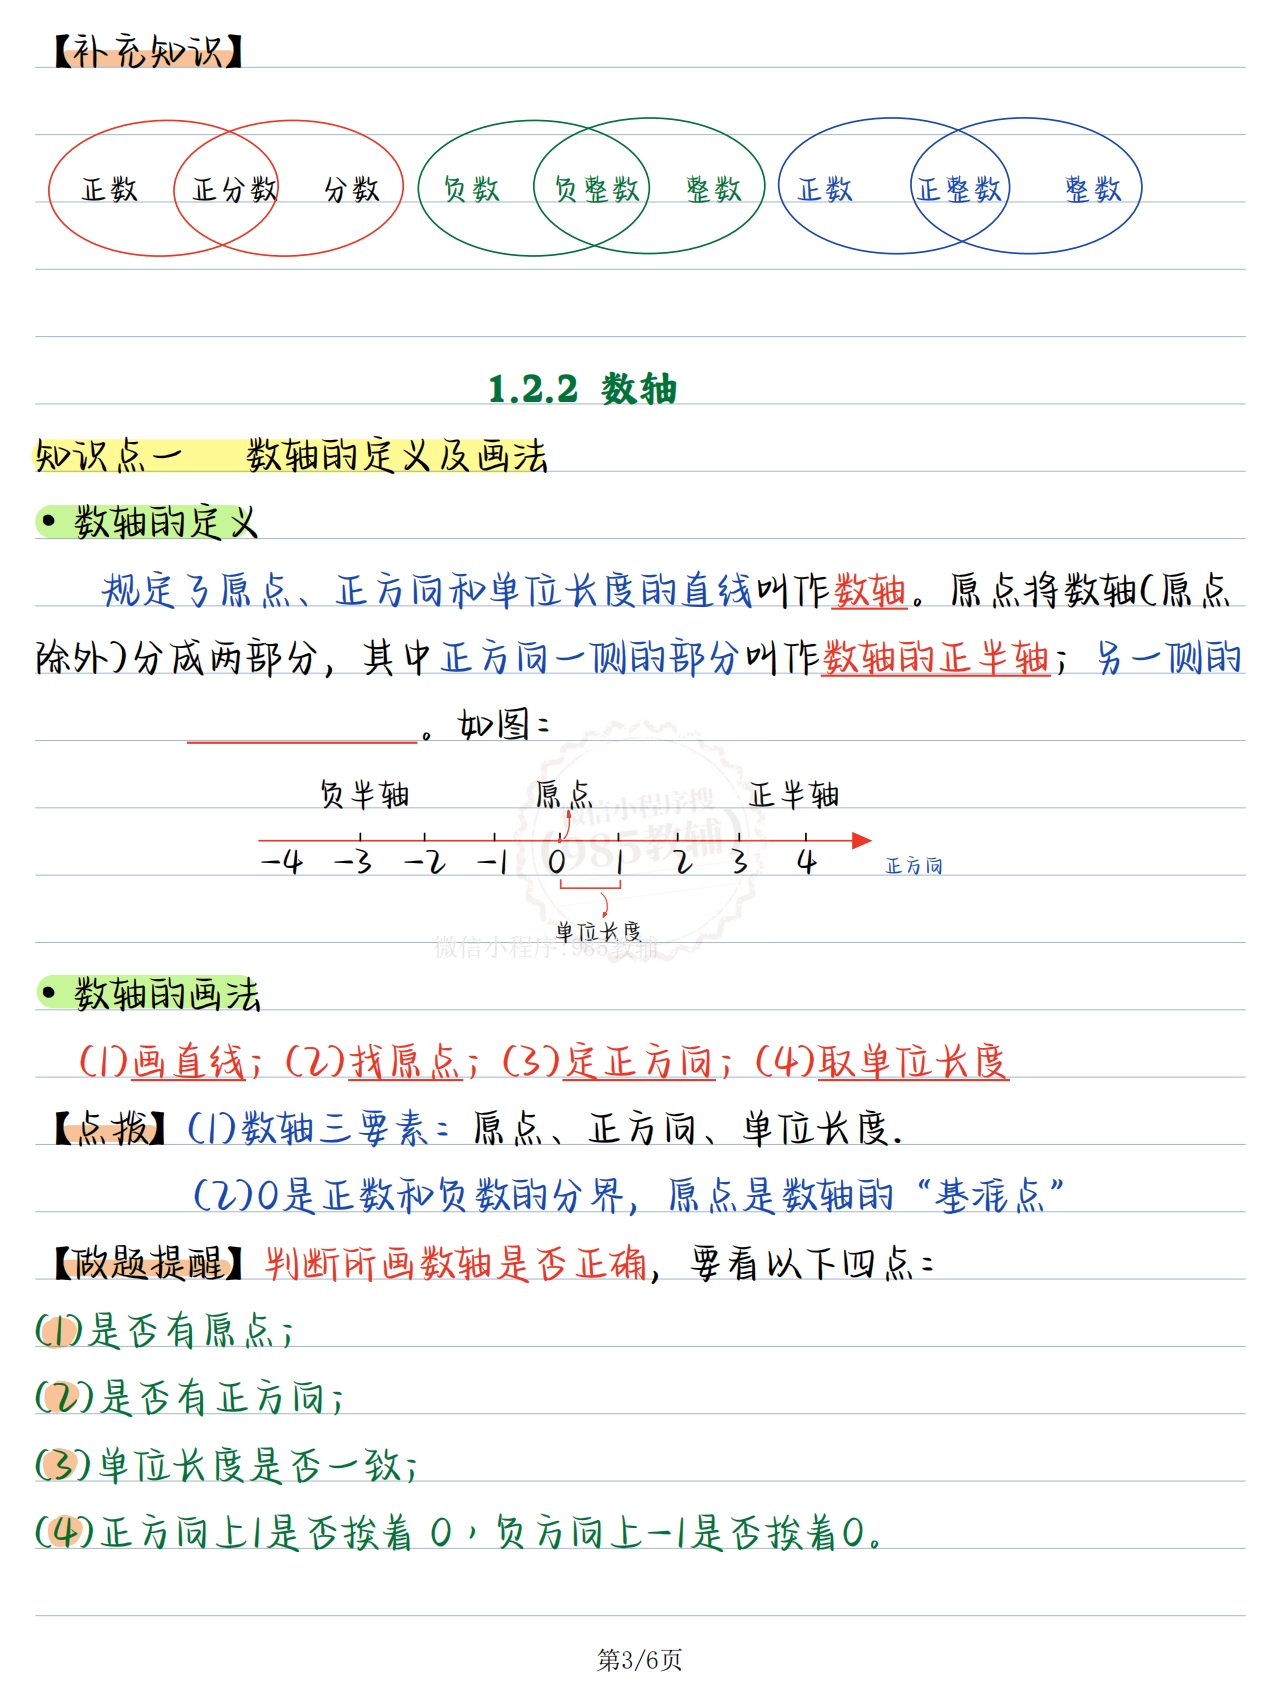 【补充知识】
正数 正分数 分数 负数 负整数 整数 正数 正整数 整数
1.2.2 数轴
知识点一 数轴的定义及画法
• 数轴的定义
规定了原点、正方向和单位长度的直线叫作数轴。原点将数轴(原点
除外)分成两部分，其中正方向一侧的部分叫作数轴的正半轴；另一侧的
。如图：
负半轴 原点 正半轴
-4 -3 -2 -1 0 1 2 3 4 正方向
单位长度
微信小程序搜
(985教辅)
微信小程序:985教辅
• 数轴的画法
(1)画直线；(2)找原点；(3)定正方向；(4)取单位长度
【点拨】(1)数轴三要素：原点、正方向、单位长度.
(2)0是正数和负数的分界，原点是数轴的“基准点”
【做题提醒】判断所画数轴是否正确，要看以下四点：
(1)是否有原点；
(2)是否有正方向；
(3)单位长度是否一致；
(4)正方向上1是否挨着 0，负方向上-1是否挨着0。
第3/6页